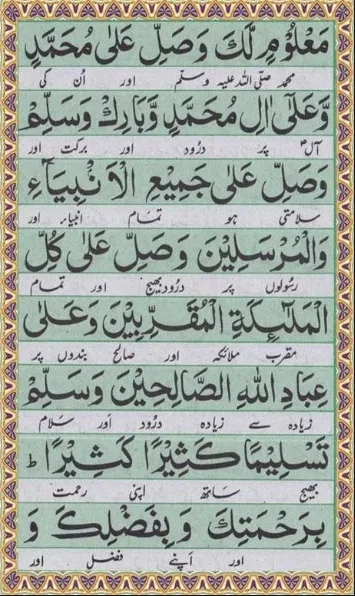 مَعْلُوْمٍ لَّكَ وَصَلِّ عَلٰى مُحَمَّدٍ
محمد صلّی اللہ علیہ وسلم اور اُن کی
وَّعَلٰٓى اٰلِ مُحَمَّدٍ وَّبَارِكْ وَسَلِّمْ
آل پر درُود اور برکت اور
وَصَلِّ عَلٰى جَمِيْعِ الْاَنْۢبِيَآءِ
سلامتی ہو تمام انبیاء اور
وَالْمُرْسَلِيْنَ وَصَلِّ عَلٰى كُلِّ
رسُولوں پر درُود بھیج اور تمام
الْمَلٰٓئِكَةِ الْمُقَرَّبِيْنَ وَعَلٰى
مقرب ملائکہ اور صالح بندوں پر
عِبَادِ اللهِ الصَّالِحِيْنَ وَسَلِّمْ
زیادہ سے زیادہ درُود اور سَلام
تَسْلِيْمًا كَثِيْرًا كَثِيْرًا ط
بھیج ساتھ اپنی رحمت
بِرَحْمَتِكَ وَبِفَضْلِكَ وَ
اور اَپنے فضل اور